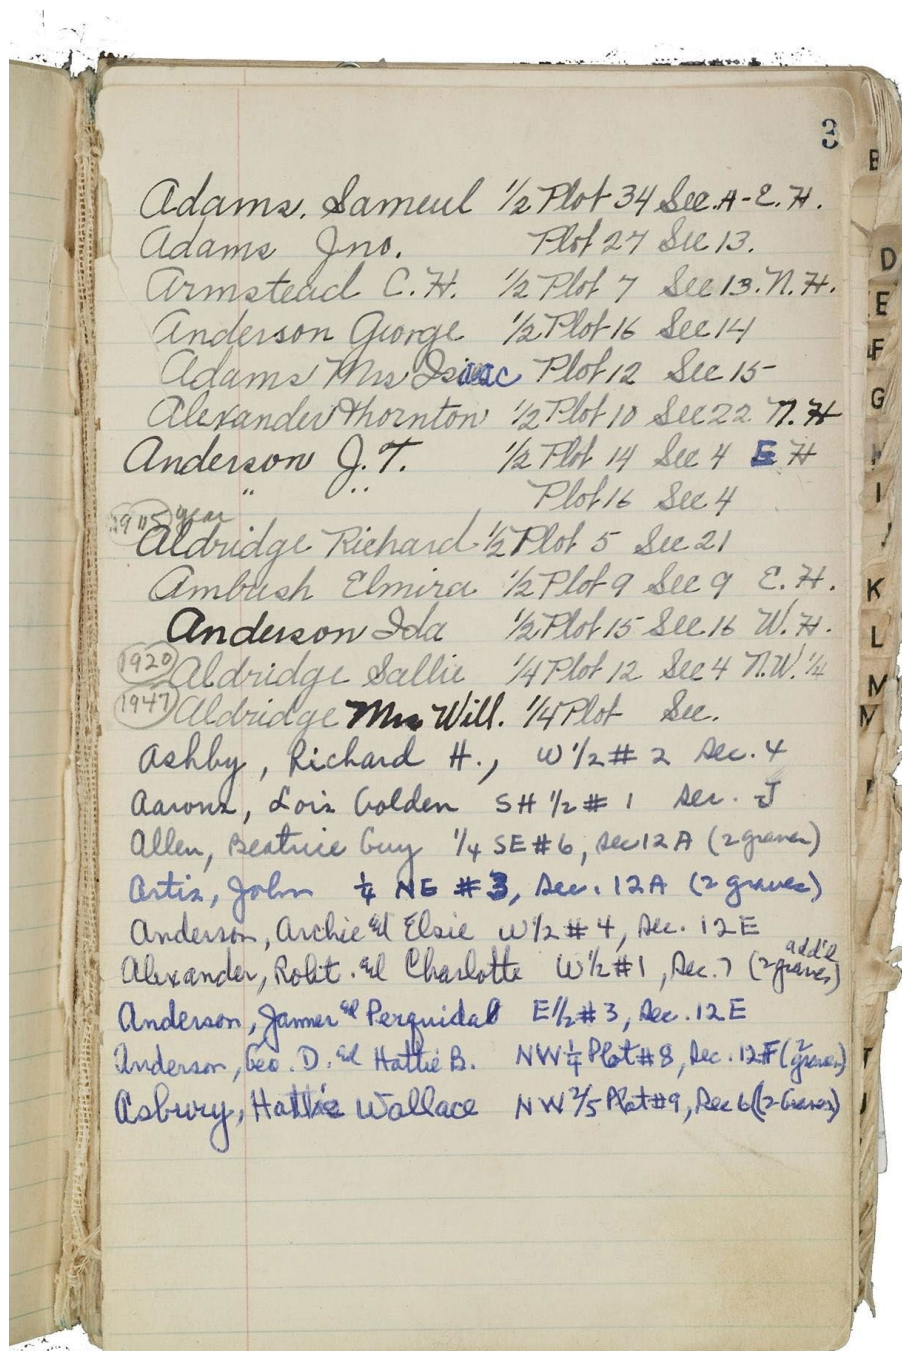 3
Adams. Sameul 1/2 Plot 34 Sec. A - E. H.
Adams Jno. Plot 27 Sec 13.
Armstead C. H. 1/2 Plot 7 Sec 13. N. H.
Anderson George 1/2 Plot 16 Sec 14
Adams Mrs Isaac Plot 12 Sec 15
Alexander Thornton 1/2 Plot 10 Sec 22 N. H
Anderson J. T. 1/2 Plot 14 Sec 4 E H
" " Plot 16 Sec 4
1905 year
Aldridge Richard 1/2 Plot 5 Sec 21
Ambush Elmira 1/2 Plot 9 Sec 9 E. H.
Anderson Ida 1/2 Plot 15 Sec 16 W. H.
1920 Aldridge Sallie 1/4 Plot 12 Sec 4 N. W. 1/4
1947 Aldridge Mrs Will. 1/4 Plot Sec.
Ashby, Richard H., W 1/2 # 2 Sec. 4
Aarons, Lois Golden SH 1/2 # 1 Sec. J
Allen, Beatrice Guy 1/4 SE # 6, Sec 12 A (2 graves)
Artis, John 1/4 NE # 3, Sec. 12A (2 graves)
Anderson, Archie Elsie W 1/2 # 4, Sec. 12 E
add'l
Alexander, Robt. Charlotte W 1/2 # 1, Sec. 7 (2 graves)
Anderson, James E 1/2 # 3, Sec. 12 E
Anderson, Geo. D. Hattie B. NW 1/4 Plot # 8, Sec. 12 F (2 graves)
Asbury, Hattie Wallace NW 2/5 Plot # 9, Sec 6 (2 Graves)
B
D
E
F
G
I
J
K
L
M